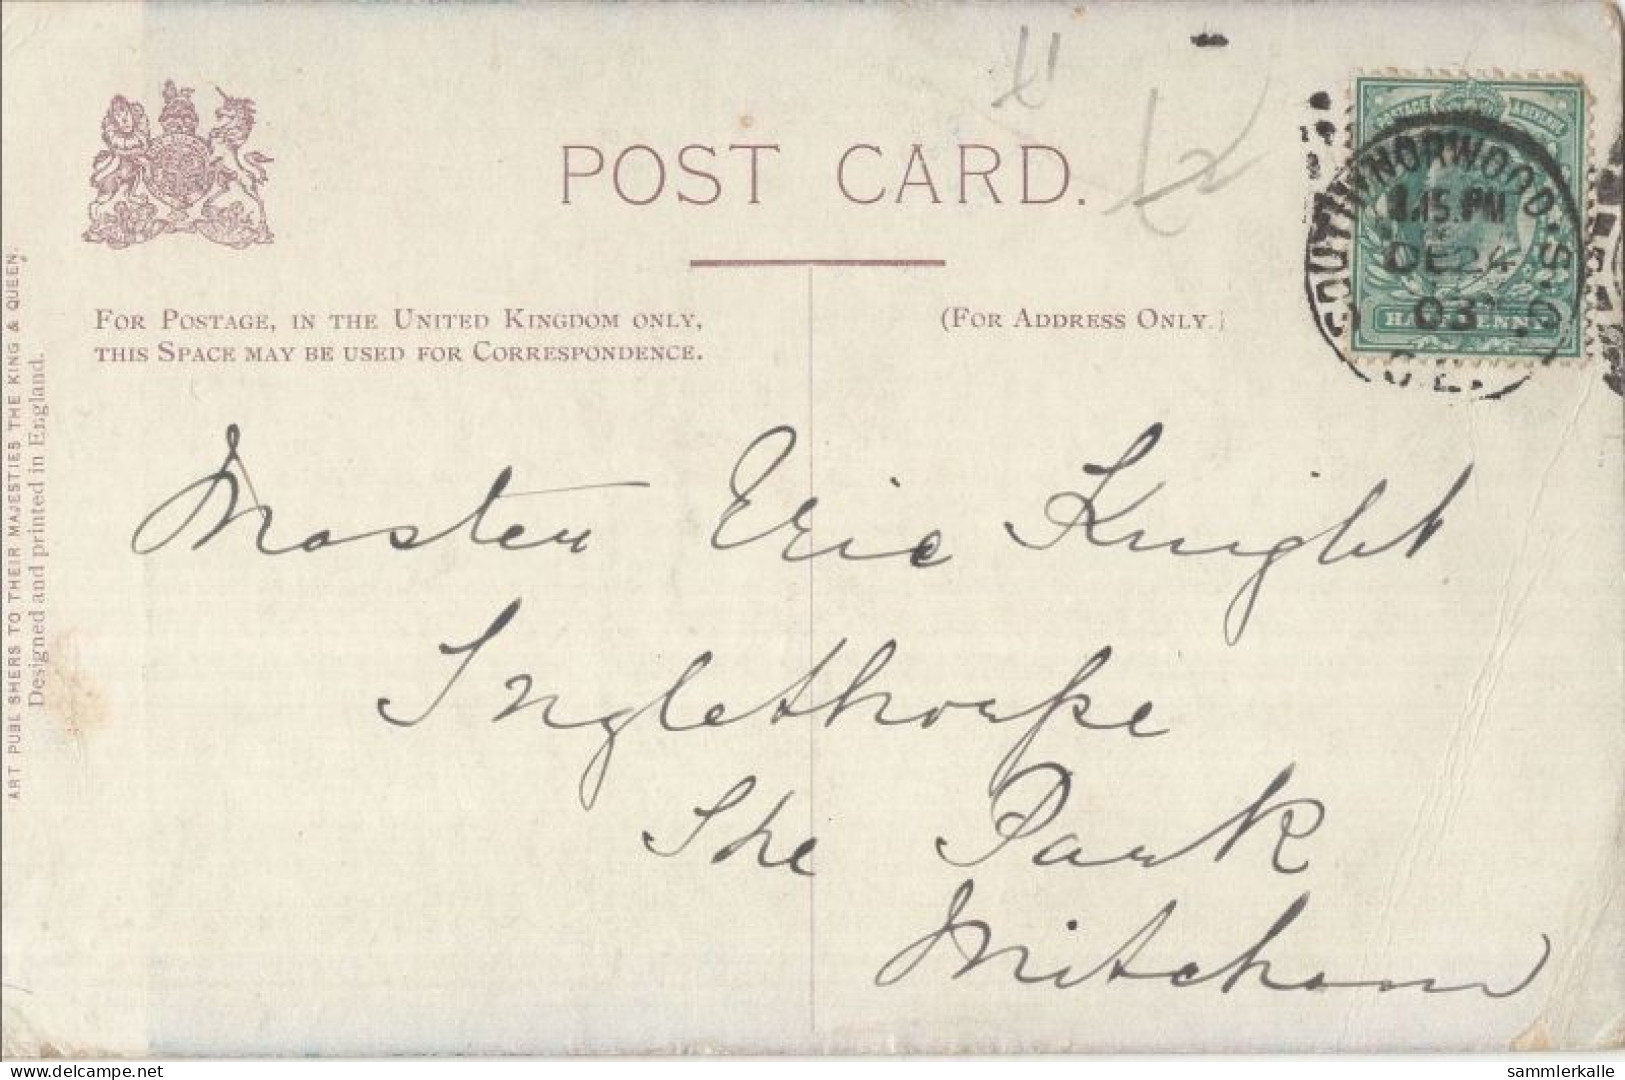 POST CARD.
FOR POSTAGE, IN THE UNITED KINGDOM ONLY,
THIS SPACE MAY BE USED FOR CORRESPONDENCE.
(FOR ADDRESS ONLY.)
POSTAGE & REVENUE
HALFPENNY
SOUTH NORWOOD. S.O.
8.15.PM
DE 24
03
S.E.
ART PUBLISHERS TO THEIR MAJESTIES THE KING & QUEEN.
Designed and printed in England.
Master Eric Knight
Inglethorpe
The Park
Mitcham
sammlerkalle